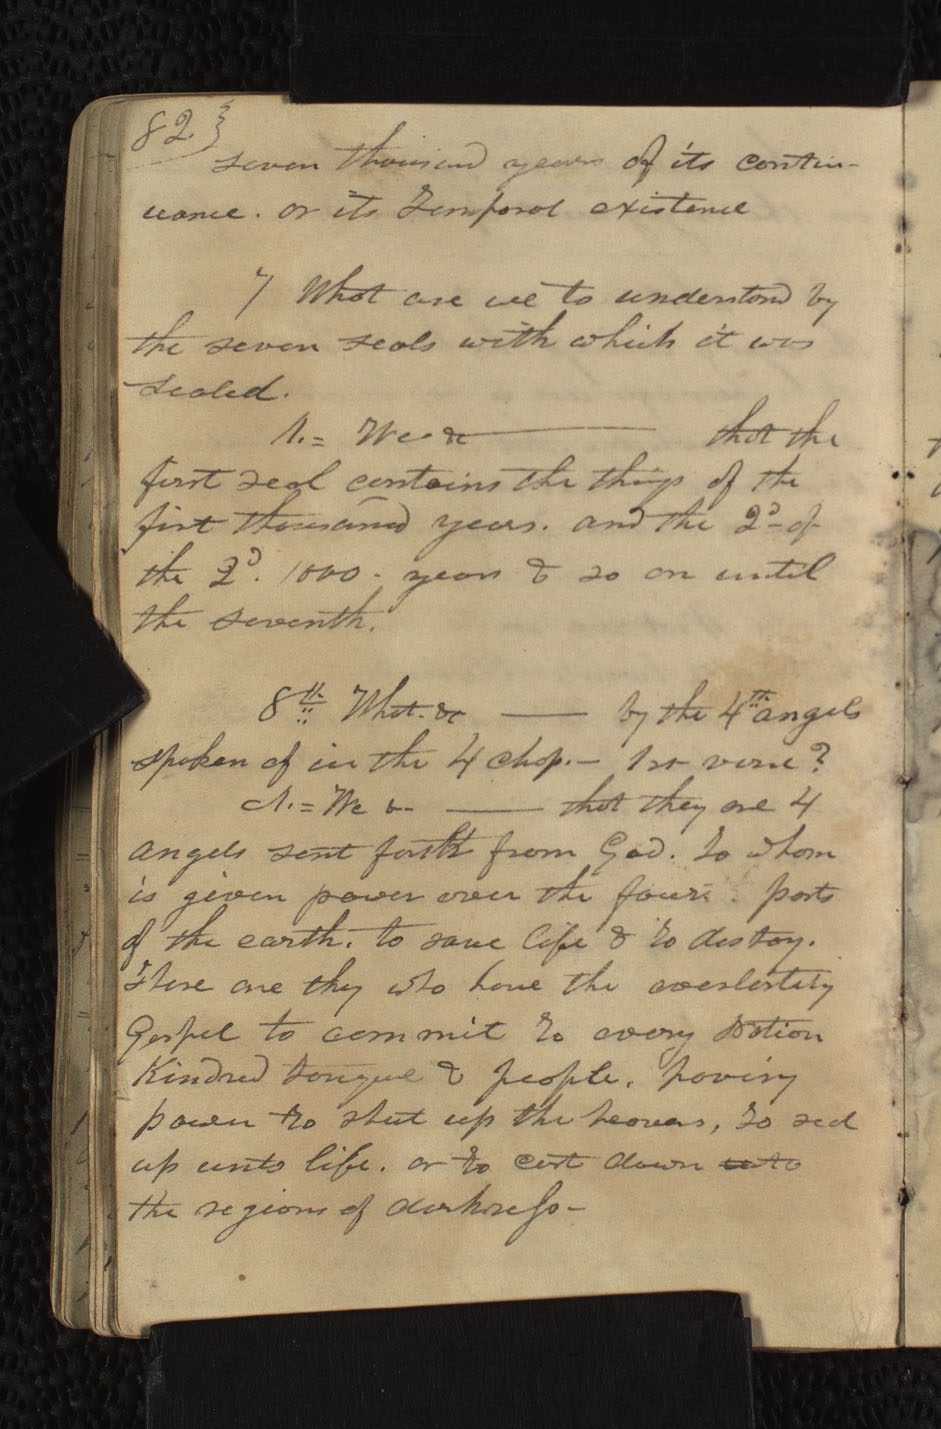 82}
seven thousand years of its contin-
uance. or its Temporal existence
7 What are we to understand by
the seven seals with which it was
sealed.
A.= We &c ——— that the
first seal contains the things of the
first thousand years. and the 2d of
the 2d. 1000. years & so on until
the seventh.
8th What. &c —— by the 4th angels
spoken of in the 4 chap.— 1st verse?
A.= We &— —— that they are 4
angels sent forth from God. to whom
is given power over the four parts
of the earth. to save life & to destoy.
These are they who have the everlasting
Gospel to commit to every Nation
Kindred tongue & people. having
power to shut up the heavens, to seal
up unto life. or to cast down unto
the regions of darkness—